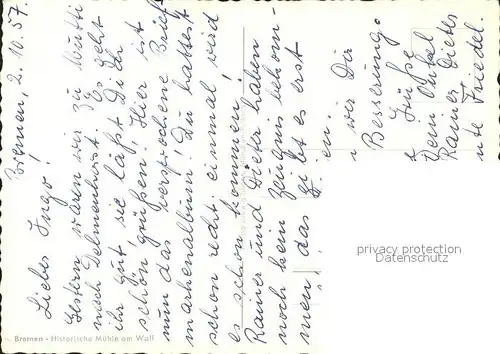 Bremen, 2. 10. 57.
Liebes Ingo!
Gestern waren wir zu Mutti
nach Delmenhorst. Es geht
ihr gut, sie läßt Dich
schön grüßen. Hier ist
nun das versprochene Brief
markenalbum! Du hattest
schon recht einmal, wird
es schon kommen!
Rainer und Dieter haben
noch kein Zeugnis bekom-
men, das gibt es erst
wir Dir
Besserung.
Grüße
Dein Onkel
Rainer Dieter
Friedel.
privacy protection
Datenschutz
Bremen • Historische Mühle am Wall